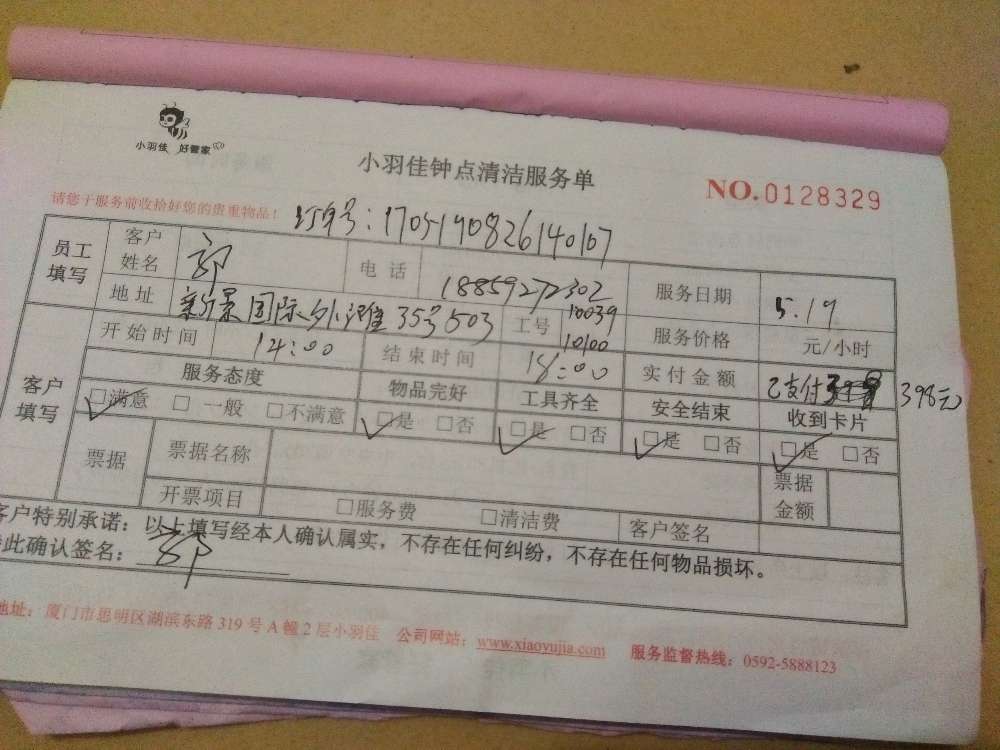 小羽佳 好管家
小羽佳钟点清洁服务单
NO.0128329
请您于服务前收拾好您的贵重物品！
订单号：1705190826140107
员工填写 客户姓名 郭 电话 18859272302 服务日期 5.19
地址 新景国际外滩35号503 工号 10039 10100 服务价格 元/小时
客户填写 开始时间 14:00 结束时间 18:00 实付金额 已支付 398元
服务态度 物品完好 工具齐全 安全结束 收到卡片
☑满意 □一般 □不满意 ☑是 □否 ☑是 □否 ☑是 □否 ☑是 □否
票据 票据名称 票据金额
开票项目 □服务费 □清洁费 客户签名
客户特别承诺：以上填写经本人确认属实，不存在任何纠纷，不存在任何物品损坏。
此确认签名：郭
地址：厦门市思明区湖滨东路319号A幢2层小羽佳 公司网站：www.xiaoyujia.com 服务监督热线：0592-5888123